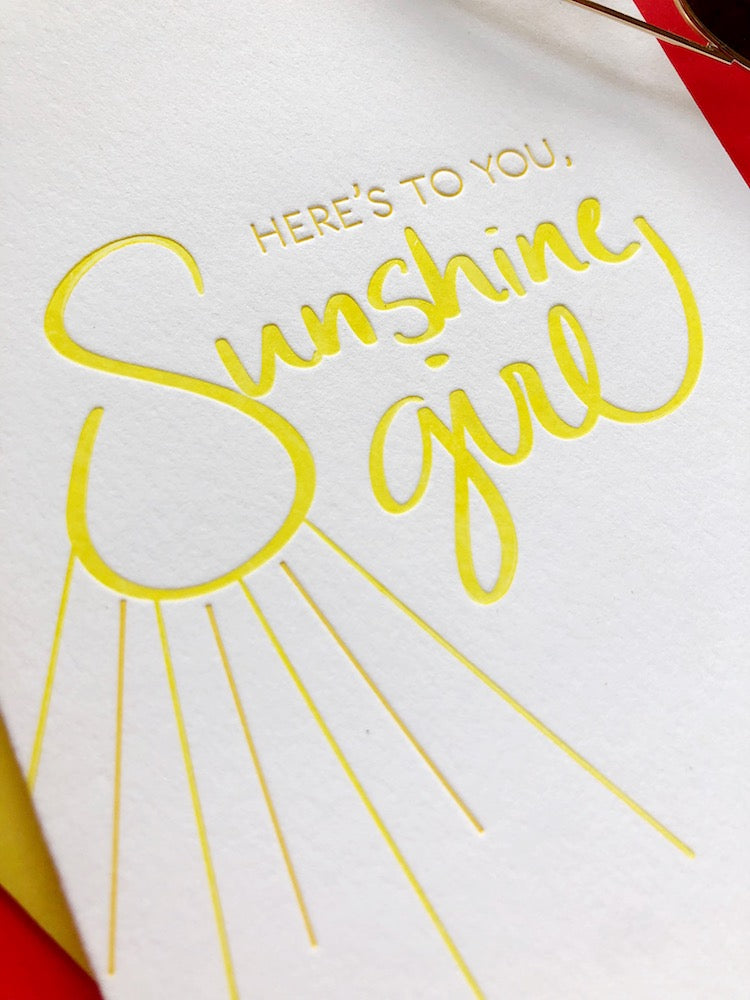 HERE'S TO YOU,
Sunshine
girl